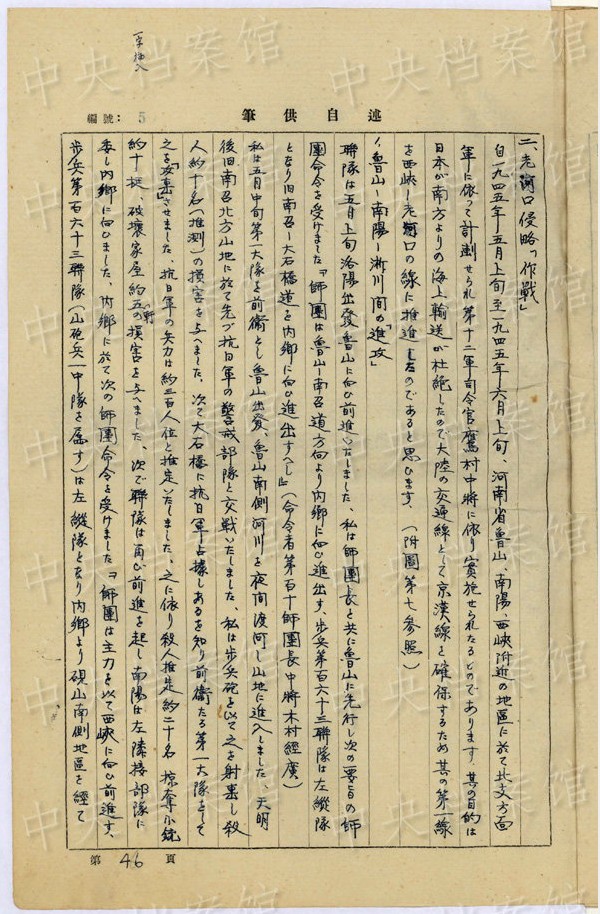 一字挿入
編號: 5
筆供自述
二、老河口侵略「作戦」
自一九四五年五月上旬至一九四五年六月上旬、河南省魯山、南陽、西峡附近の地區に於て北支方面
軍に依って計劃せられ第十二軍司令官鷹村中將に依り實施せられたるものであります。其の目的は
日本が南方よりの海上輸送が杜絶したので大陸の交通線として京漢線を確保するため其の第一線
を西峡―老河口の線に推進したのであると思ひます。(附圖第七参照)
1、魯山―南陽―淅川間の「進攻」
聯隊は五月上旬洛陽出發魯山に向ひ前進いたしました、私は師團長と共に魯山に先行し次の要旨の師
團命令を受けました『師團は魯山―南召道方向より内郷に向ひ進出す、歩兵第百六十三聯隊は左縦隊
となり旧南召―大石橋道を内郷に向ひ進出すへし』(命令者第百十師團長中將木村經廣)
私は五月中旬第一大隊を前衛とし魯山出發、魯山南側河川を夜間渡河し山地に進入しました、天明
後旧南召北方山地に於て先づ抗日軍の警戒部隊と交戦いたしました、私は歩兵砲を以て之を射撃し殺
人約十名(推測)の損害を与へました、次て大石橋に抗日軍占據しあるを知り前衛たる第一大隊をして
之を「攻撃」させました、抗日軍の兵力は約二百人位と推定いたしました、之に依り殺人推定約二十名 掠奪小銃
約十挺、破壊家屋約五軒の損害を与へました、次で聯隊は再び前進を起し南陽は左隣接部隊に
委し内郷に向ひました、内郷に於て次の師團命令を受けました『師團は主力を以て西峡に向ひ前進す、
歩兵第百六十三聯隊(山砲兵一中隊を屬す)は左縦隊となり内郷より硯山南側地區を經て
第 46 頁
中央档案馆